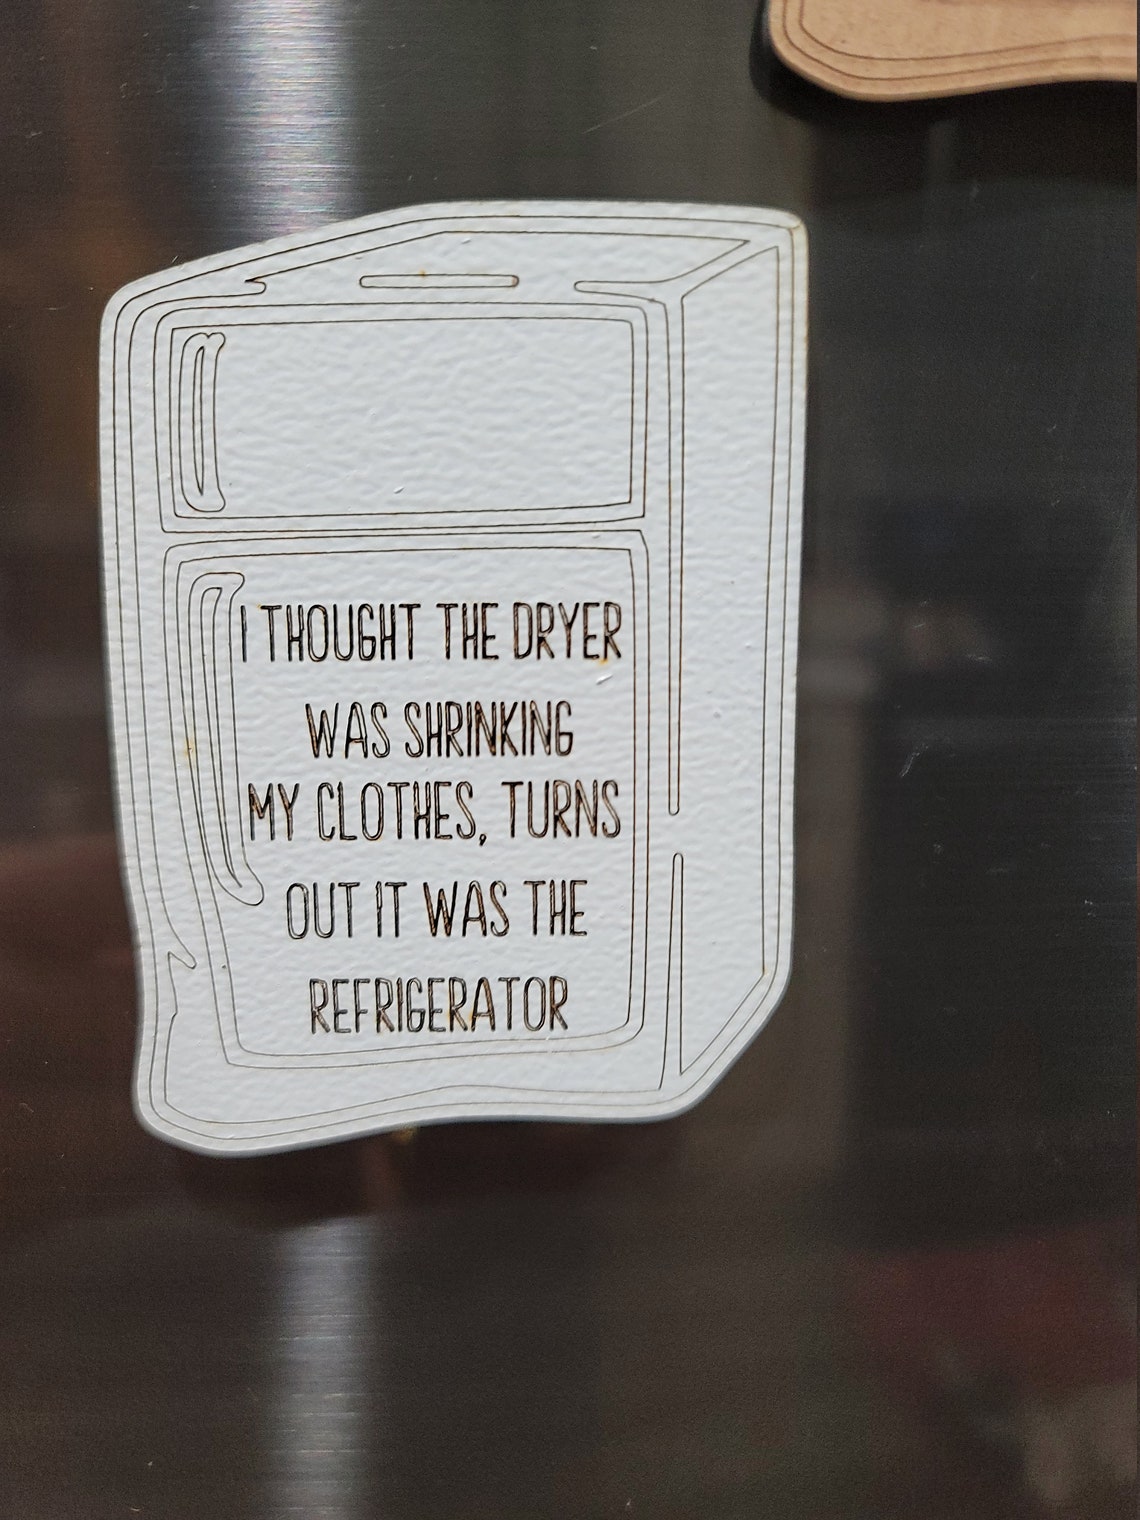 I THOUGHT THE DRYER
WAS SHRINKING
MY CLOTHES, TURNS
OUT IT WAS THE
REFRIGERATOR